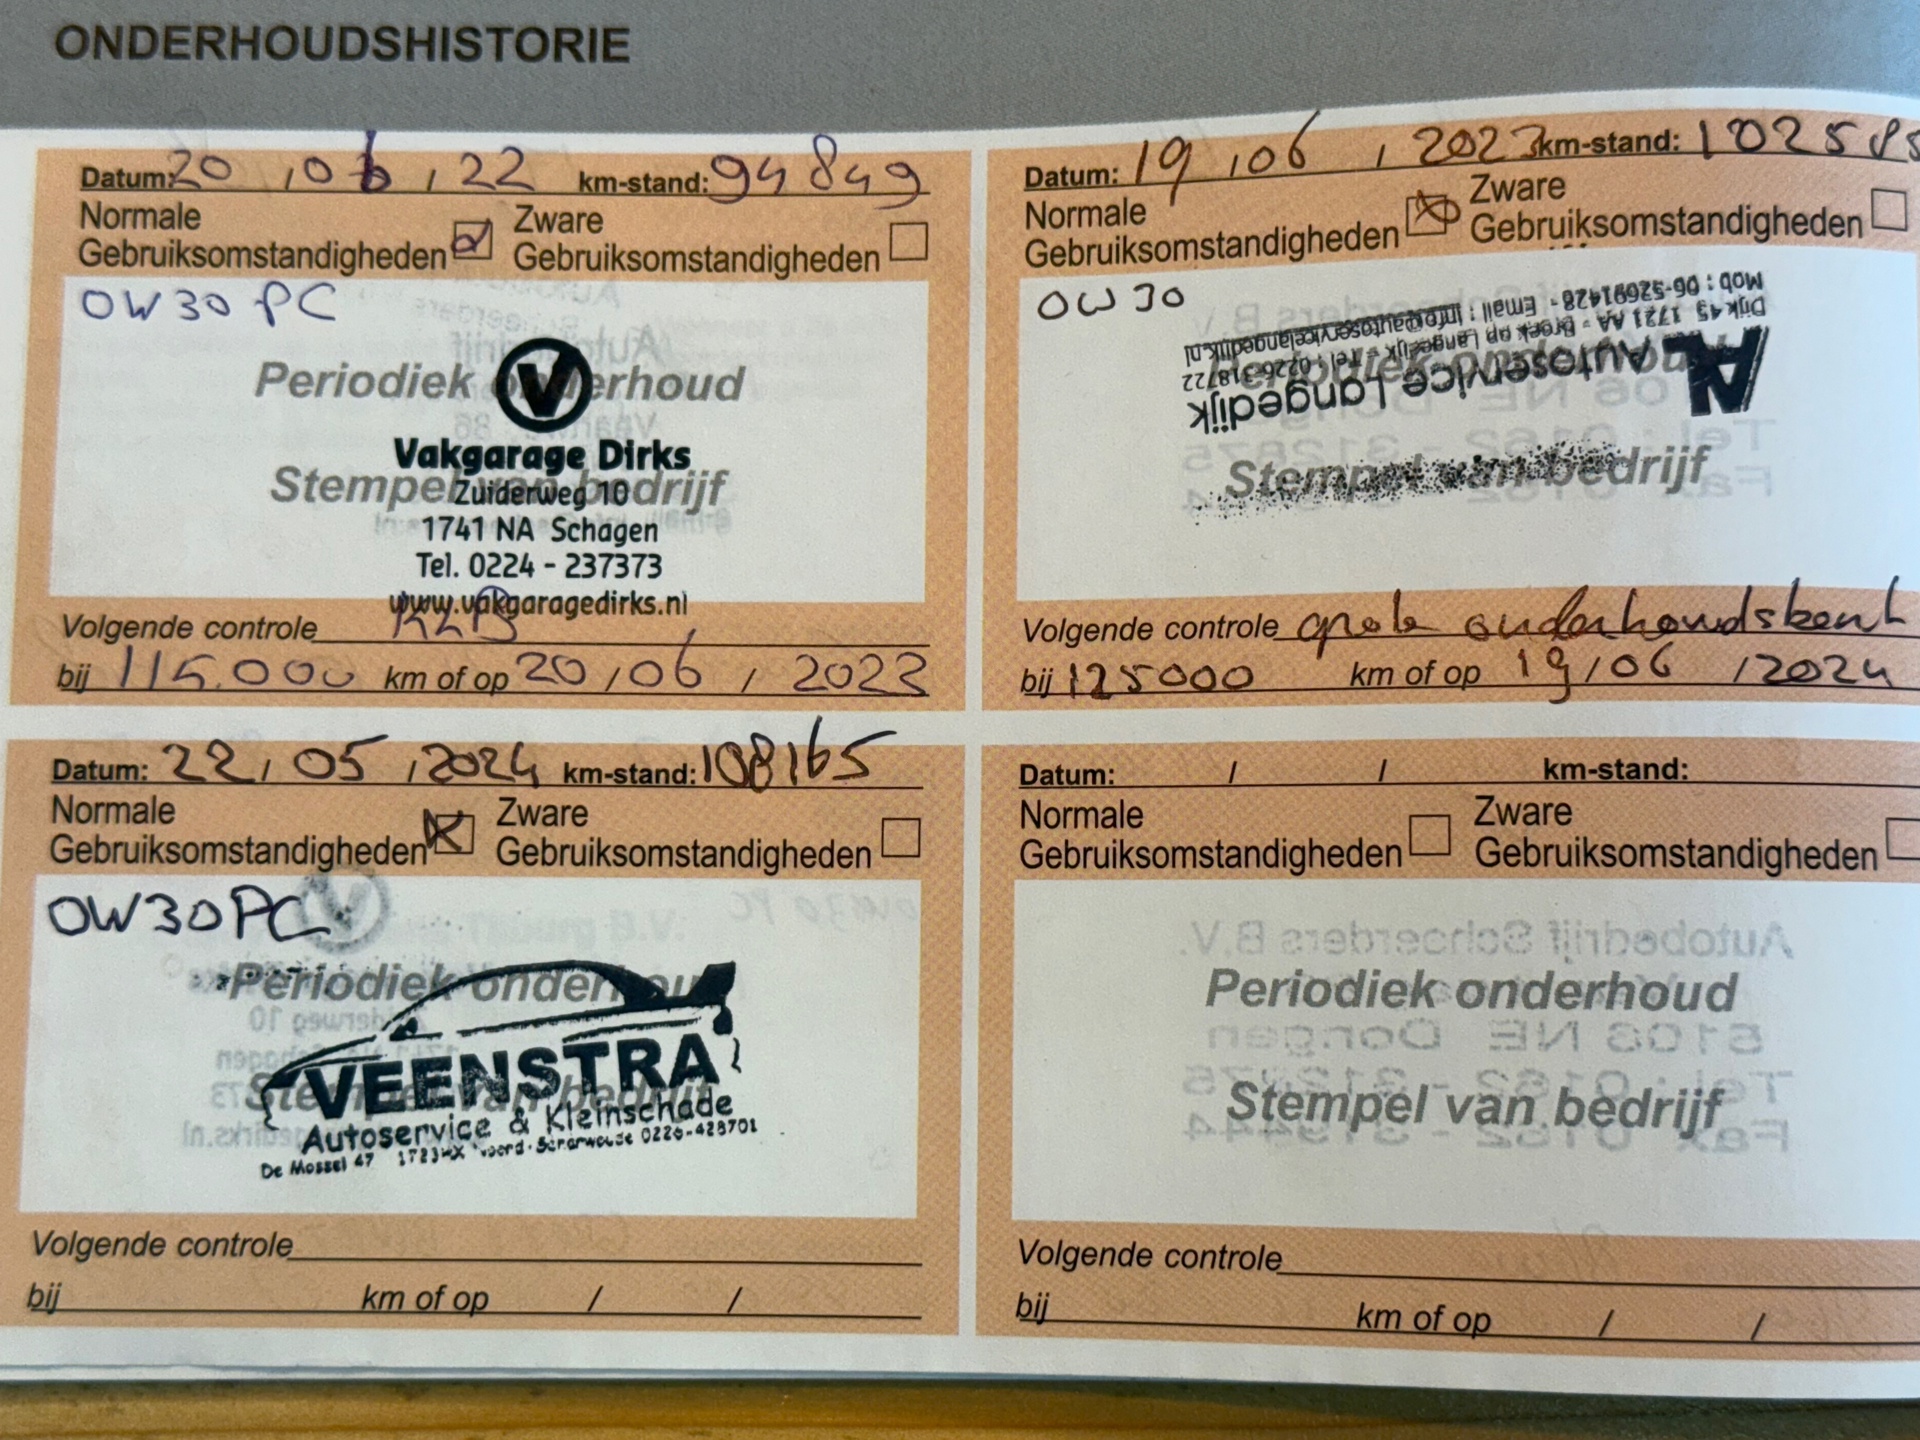 ONDERHOUDSHISTORIE
Datum: 20 / 06 / 22 km-stand: 94849
Normale Gebruiksomstandigheden
Zware Gebruiksomstandigheden
OW30 PC
Periodiek onderhoud
V
Vakgarage Dirks
Stempel van bedrijf
Zuiderweg 10
1741 NA Schagen
Tel. 0224 - 237373
www.vakgaragedirks.nl
Volgende controle
bij 115.000 km of op 20 / 06 / 2023
Datum: 19 / 06 / 2023 km-stand: 102585
Normale Gebruiksomstandigheden
Zware Gebruiksomstandigheden
OW30
Periodiek onderhoud
AL Autoservice Langedijk
Dijk 45 1721 AA - Broek op Langedijk - Tel : 0226-318722
Mob : 06-52691428 - Email : info@autoservicelangedijk.nl
Stempel van bedrijf
Volgende controle grote onderhoudsbeurt
bij 125000 km of op 19 / 06 / 2024
Datum: 22 / 05 / 2024 km-stand: 108165
Normale Gebruiksomstandigheden
Zware Gebruiksomstandigheden
OW30PC
Periodiek onderhoud
VEENSTRA
Stempel van bedrijf
Autoservice & Kleinschade
De Mossel 47 1723HX Noord-Scharwoude 0226-428701
Volgende controle
bij km of op / /
Datum: / / km-stand:
Normale Gebruiksomstandigheden
Zware Gebruiksomstandigheden
Periodiek onderhoud
Stempel van bedrijf
Volgende controle
bij km of op / /